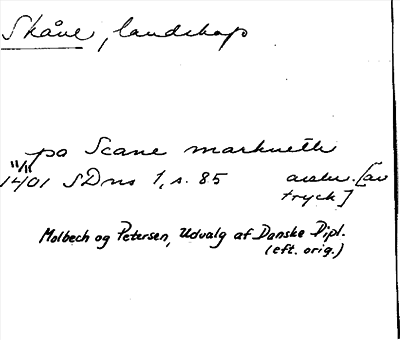 Skåne, landskap
pa Scane marknethe
11/11
1401 SDns 1, s. 85 avskr. [av
tryck]
Molbech og Petersen, Udvalg af Danske Dipl.
(eft. orig.)